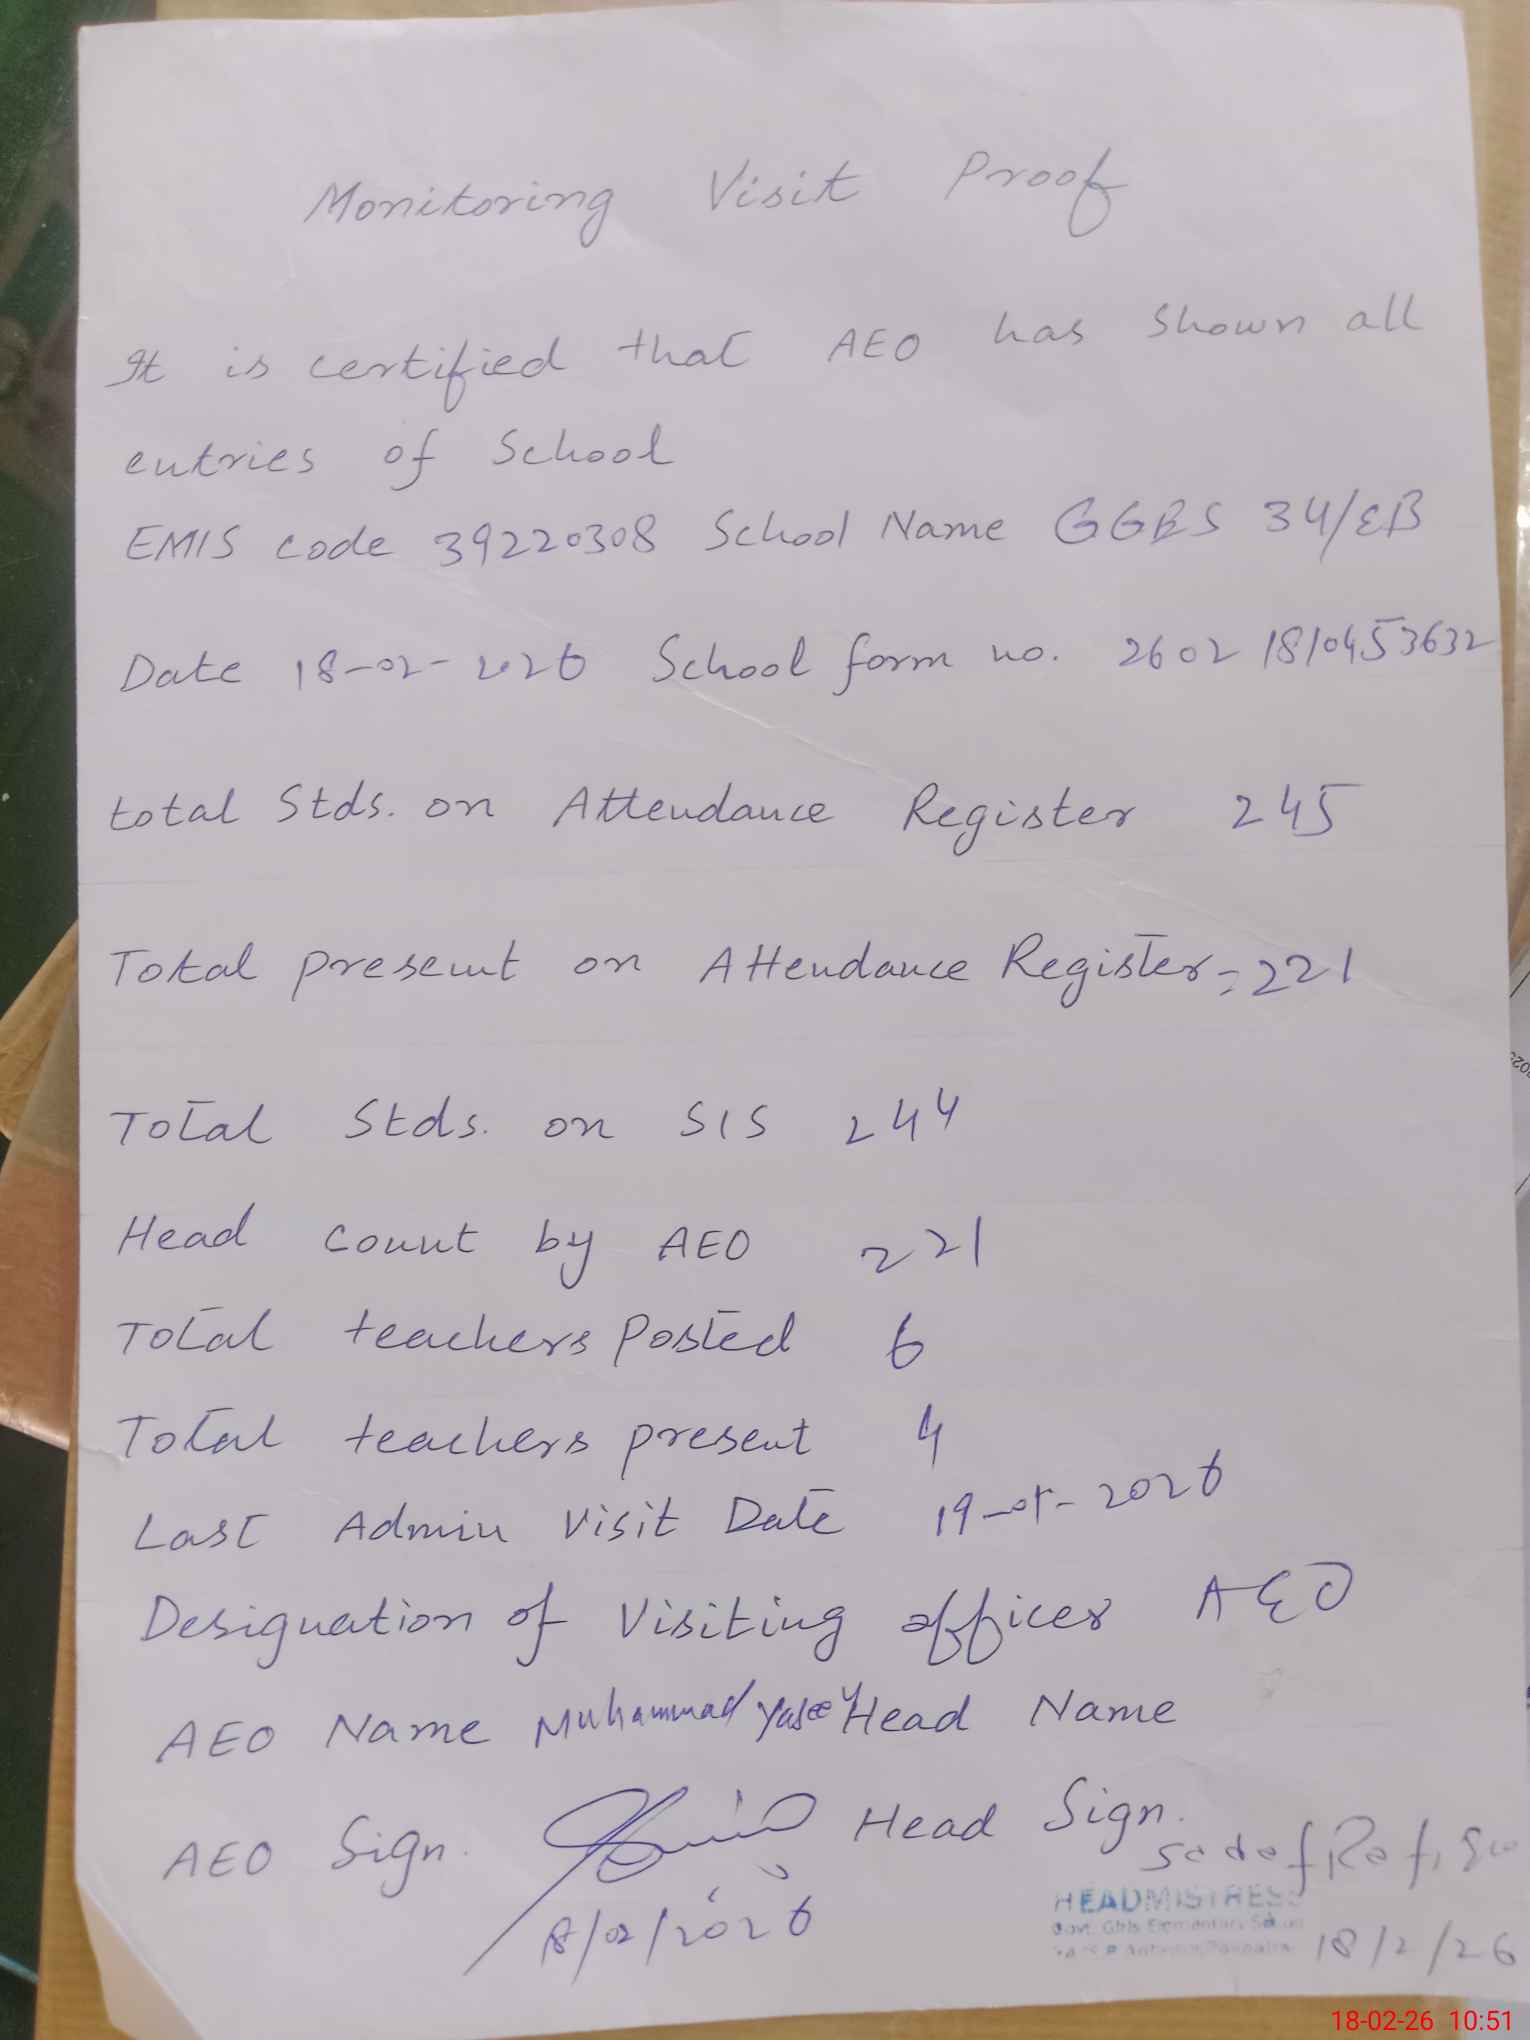 Monitoring Visit Proof
It is certified that AEO has shown all
entries of School
EMIS code 39220308 School Name GGES 34/EB
Date 18-02-2026 School form no. 2602181045 3632
total Stds. on Attendance Register 245
Total present on Attendance Register = 221
Total Stds. on SIS 244
Head count by AEO 221
Total teachers Posted 6
Total teachers present 4
Last Admin Visit Date 19-01-2026
Designation of Visiting officer AEO
AEO Name Muhammad Head Name
AEO Sign. Head Sign.
Sadaf Rafiq
18/02/2026
HEADMISTRESS
Govt. Girls Elementary School
18/2/26
18-02-26 10:51